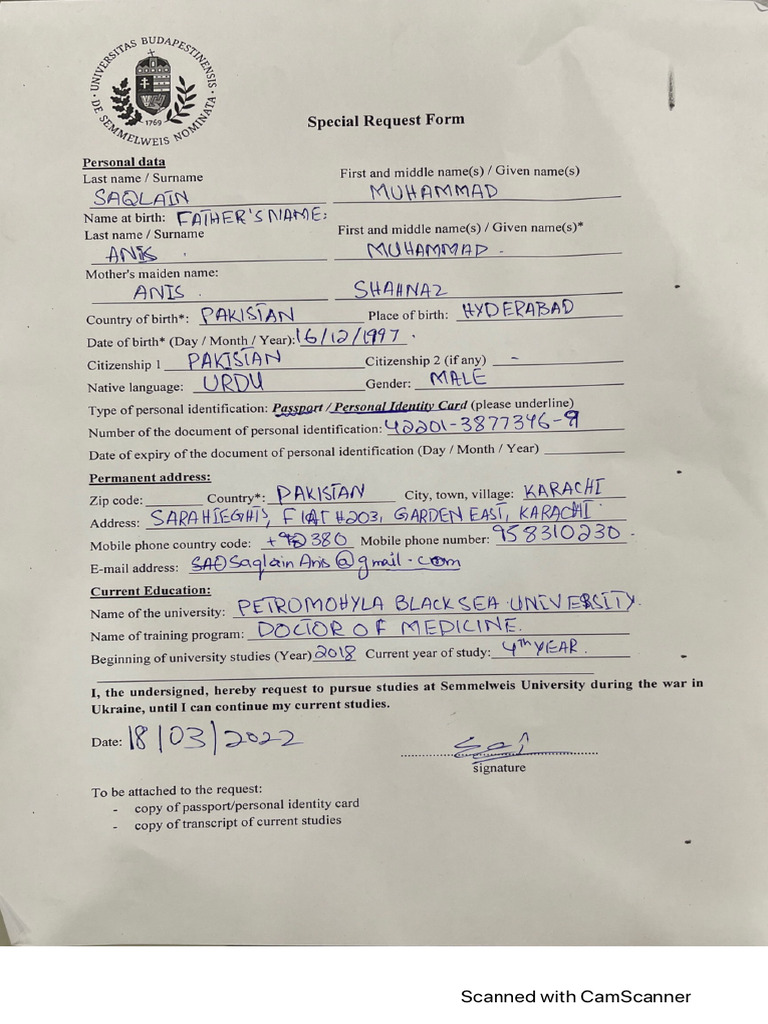 UNIVERSITAS BUDAPESTINENSIS
DE SEMMELWEIS NOMINATA
1769
Special Request Form
Personal data
Last name / Surname First and middle name(s) / Given name(s)
SAQLAIN MUHAMMAD
Name at birth: FATHER'S NAME:
Last name / Surname First and middle name(s) / Given name(s)*
ANIS MUHAMMAD
Mother's maiden name:
ANIS SHAHNAZ
Country of birth*: PAKISTAN Place of birth: HYDERABAD
Date of birth* (Day / Month / Year): 16/12/1997
Citizenship 1 PAKISTAN Citizenship 2 (if any) -
Native language: URDU Gender: MALE
Type of personal identification: Passport / Personal Identity Card (please underline)
Number of the document of personal identification: 42201-3877346-9
Date of expiry of the document of personal identification (Day / Month / Year)
Permanent address:
Zip code: Country*: PAKISTAN City, town, village: KARACHI
Address: FlAT #203, GARDEN EAST, KARACHI
Mobile phone country code: 380 Mobile phone number: 958310230
E-mail address: @gmail.com
Current Education:
Name of the university: PETROMOHYLA BLACK SEA UNIVERSITY.
Name of training program: DOCTOR OF MEDICINE.
Beginning of university studies (Year) 2018 Current year of study: 4th YEAR.
I, the undersigned, hereby request to pursue studies at Semmelweis University during the war in
Ukraine, until I can continue my current studies.
Date: 18/03/2022
signature
To be attached to the request:
- copy of passport/personal identity card
- copy of transcript of current studies
Scanned with CamScanner